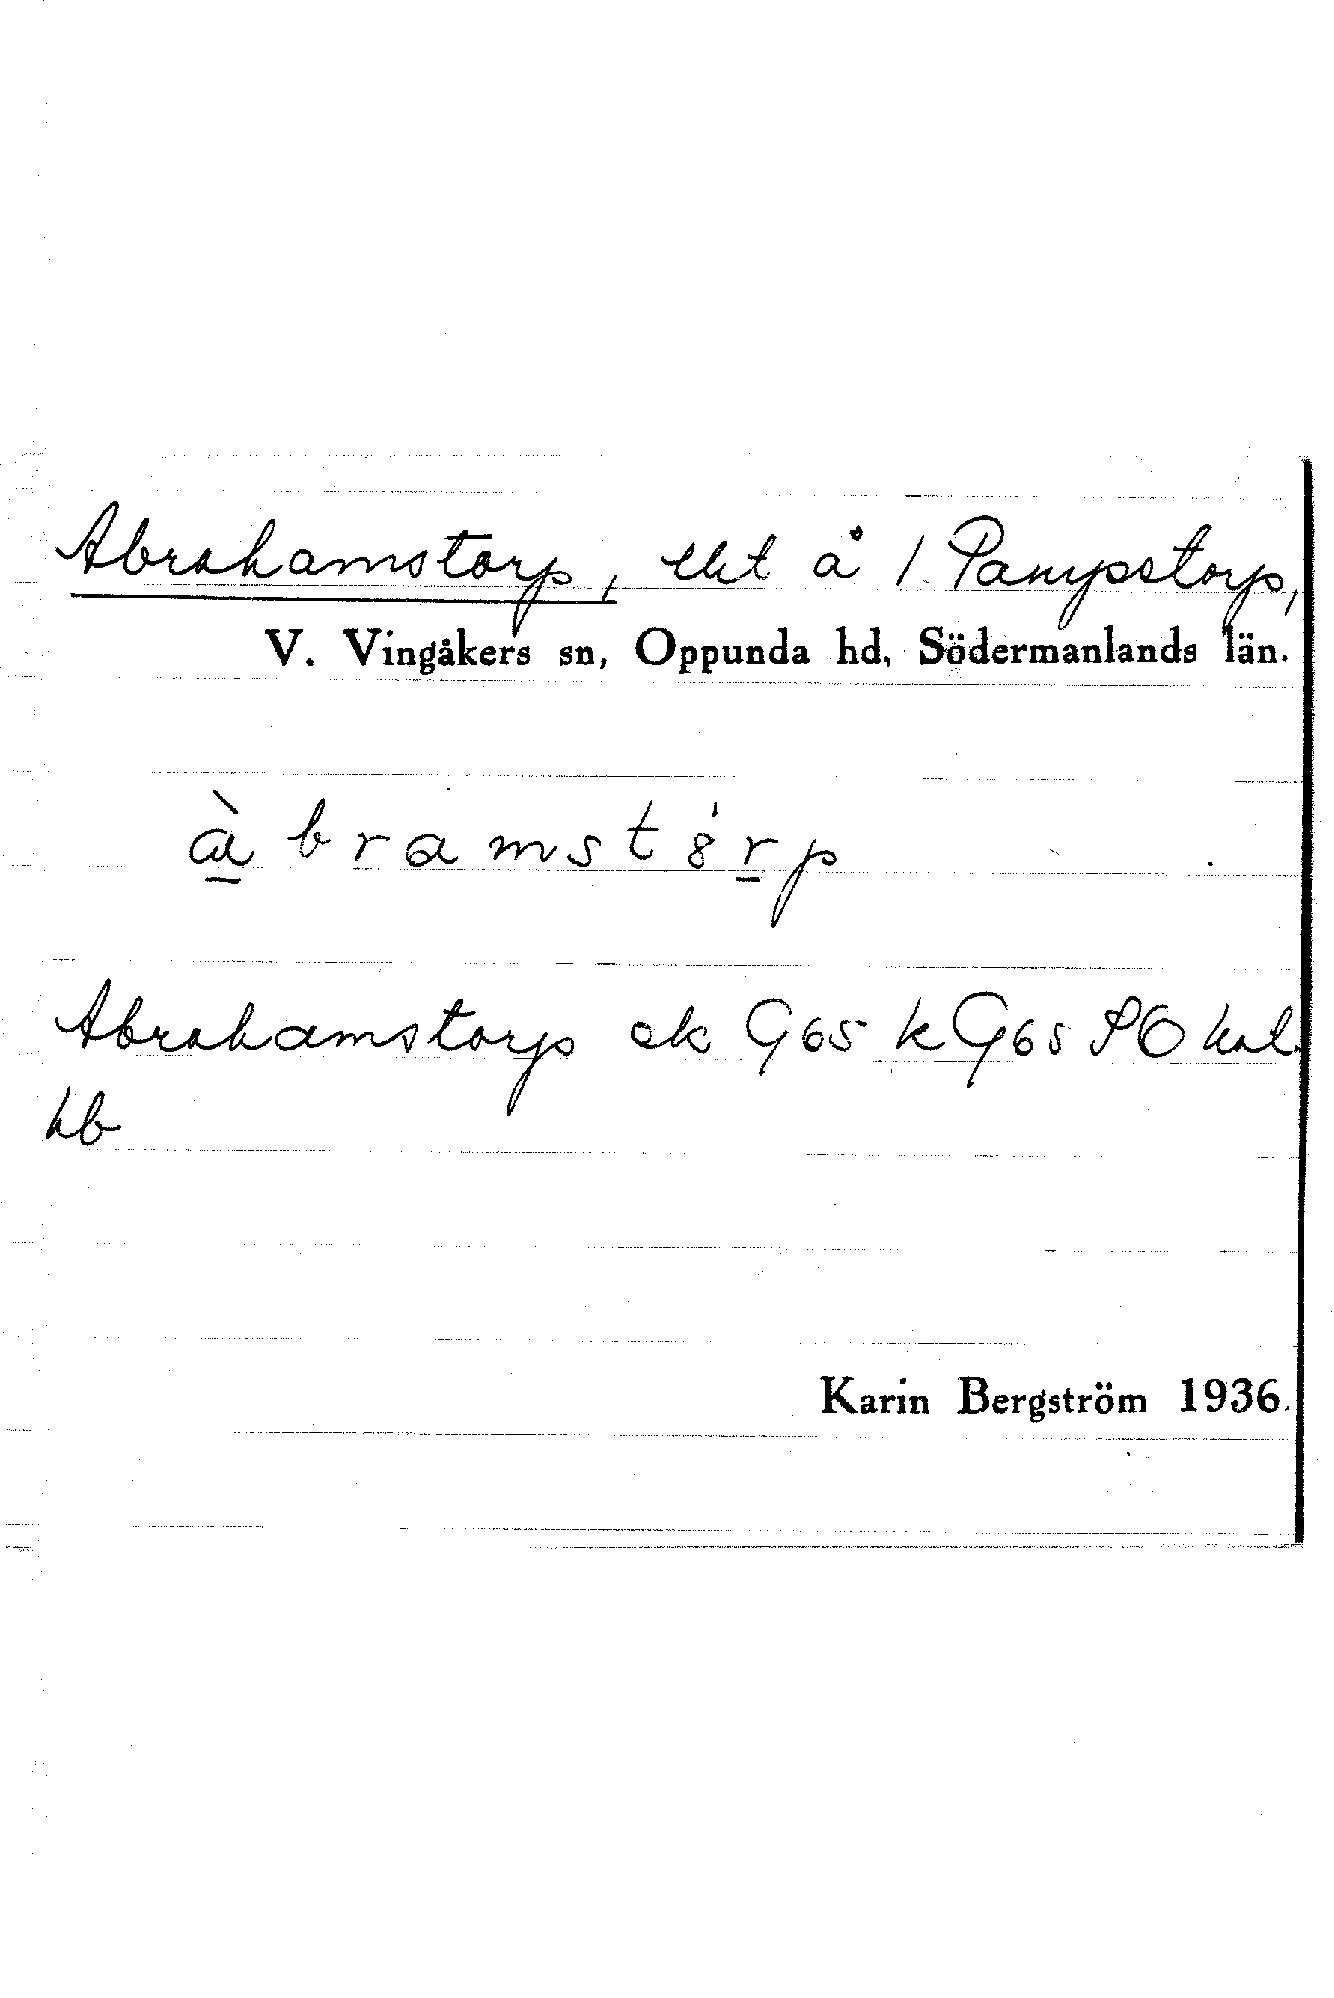 Abrahamstorp, lht å 1 Pampstorp,
V. Vingåkers sn, Oppunda hd, Södermanlands län.
à bramst8́rp
Abrahamstorp ek G65 kG65 PO kal.
hb
Karin Bergström 1936.